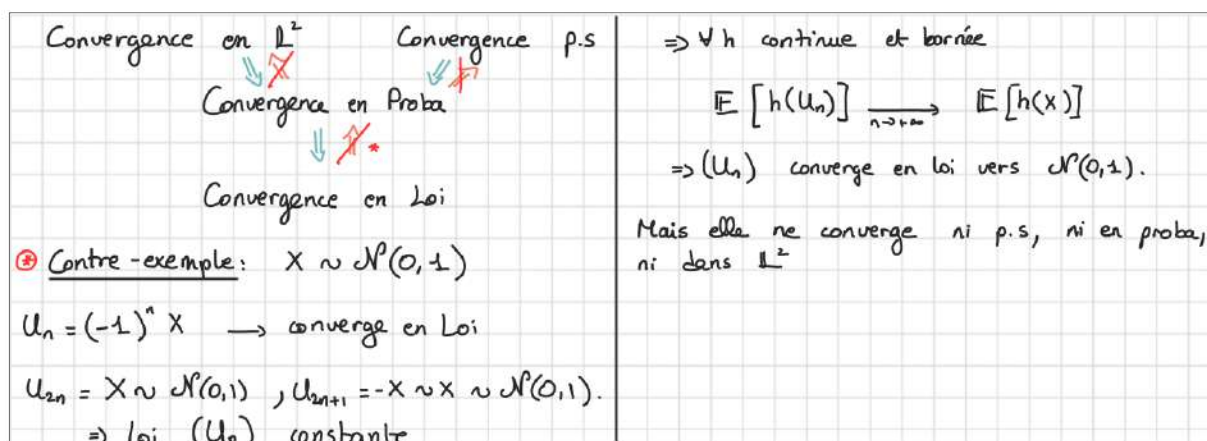 Convergence en 𝕃² Convergence p.s
⇓ ⇏ ⇓ ⇏
Convergence en Proba
⇓ ⇏ *
Convergence en Loi
⊛ Contre-exemple: X ~ 𝒩(0,1)
Uₙ = (-1)ⁿ X → converge en Loi
U₂ₙ = X ~ 𝒩(0,1) , U₂ₙ₊₁ = -X ~ X ~ 𝒩(0,1).
⇒ loi (Uₙ) constante
⇒ ∀ h continue et bornée
𝔼[h(Uₙ)] ⟶ 𝔼[h(X)]
n→+∞
⇒ (Uₙ) converge en loi vers 𝒩(0,1).
Mais elle ne converge ni p.s, ni en proba,
ni dans 𝕃²